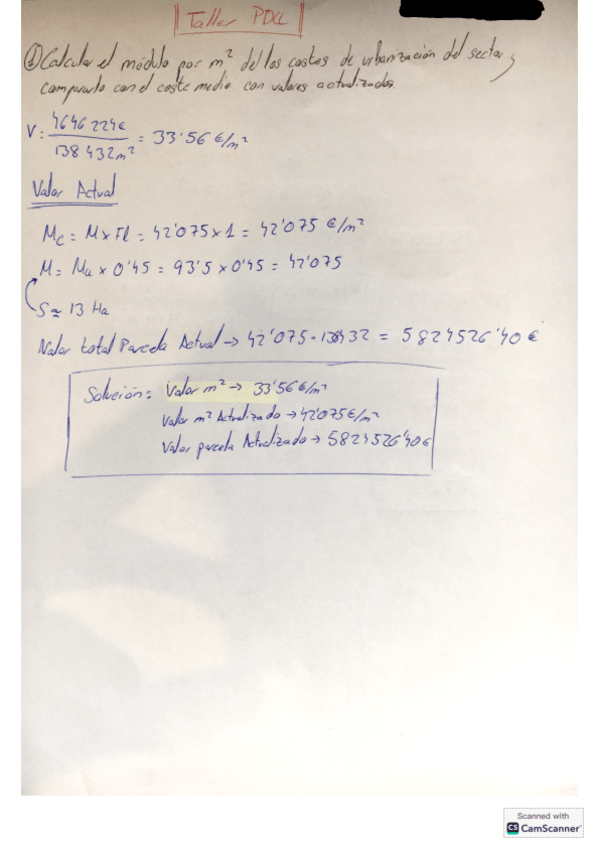 Taller PDCC
① Calcular el módulo por m² del los costes de urbanización del sector y
compararlo con el coste medio con valores actualizados.
V: 4646 224€ / 138 432 m² = 33'56 €/m²
Valor Actual
Mc = M x Fl = 42'075 x 1 = 42'075 €/m²
M = Mu x 0'45 = 93'5 x 0'45 = 42'075
S ≈ 13 Ha
Valor total Parcela Actual → 42'075 · 138432 = 5 824 526'40 €
Solución: Valor m² → 33'56 €/m²
Valor m² Actualizado → 42'075 €/m²
Valor parcela Actualizado → 5824526'40 €
Scanned with
CS CamScanner